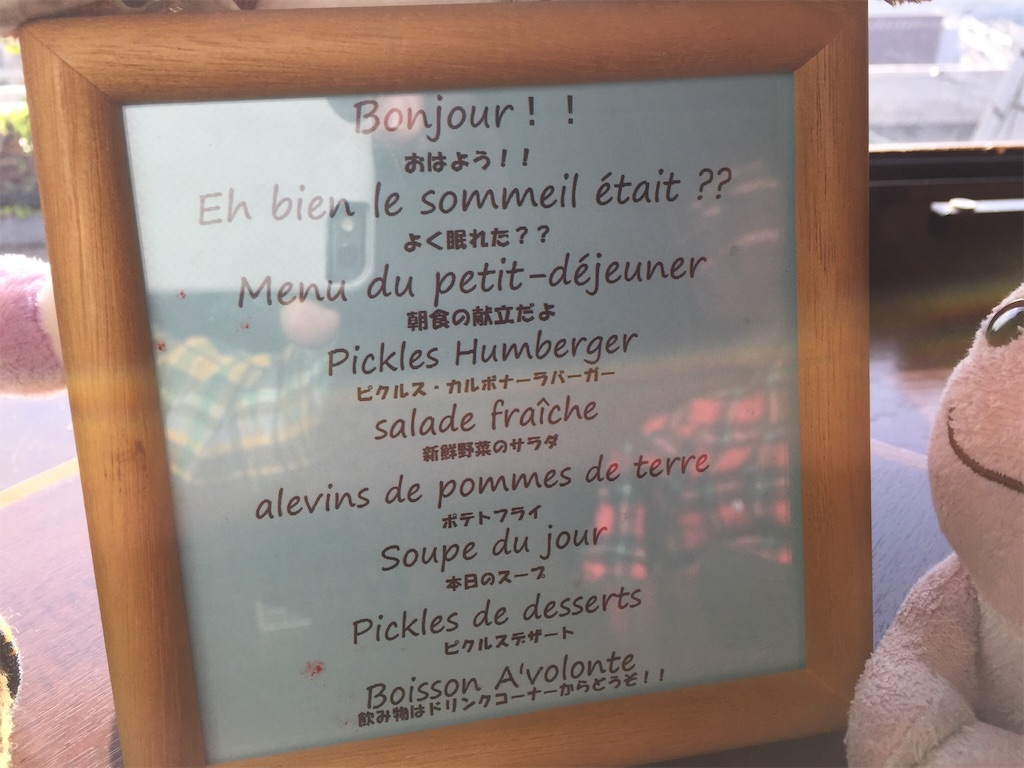 Bonjour！！
おはよう！！
Eh bien le sommeil était ??
よく眠れた？？
Menu du petit-déjeuner
朝食の献立だよ
Pickles Humberger
ピクルス・カルボナーラバーガー
salade fraîche
新鮮野菜のサラダ
alevins de pommes de terre
ポテトフライ
Soupe du jour
本日のスープ
Pickles de desserts
ピクルスデザート
Boisson A'volonte
飲み物はドリンクコーナーからどうぞ！！